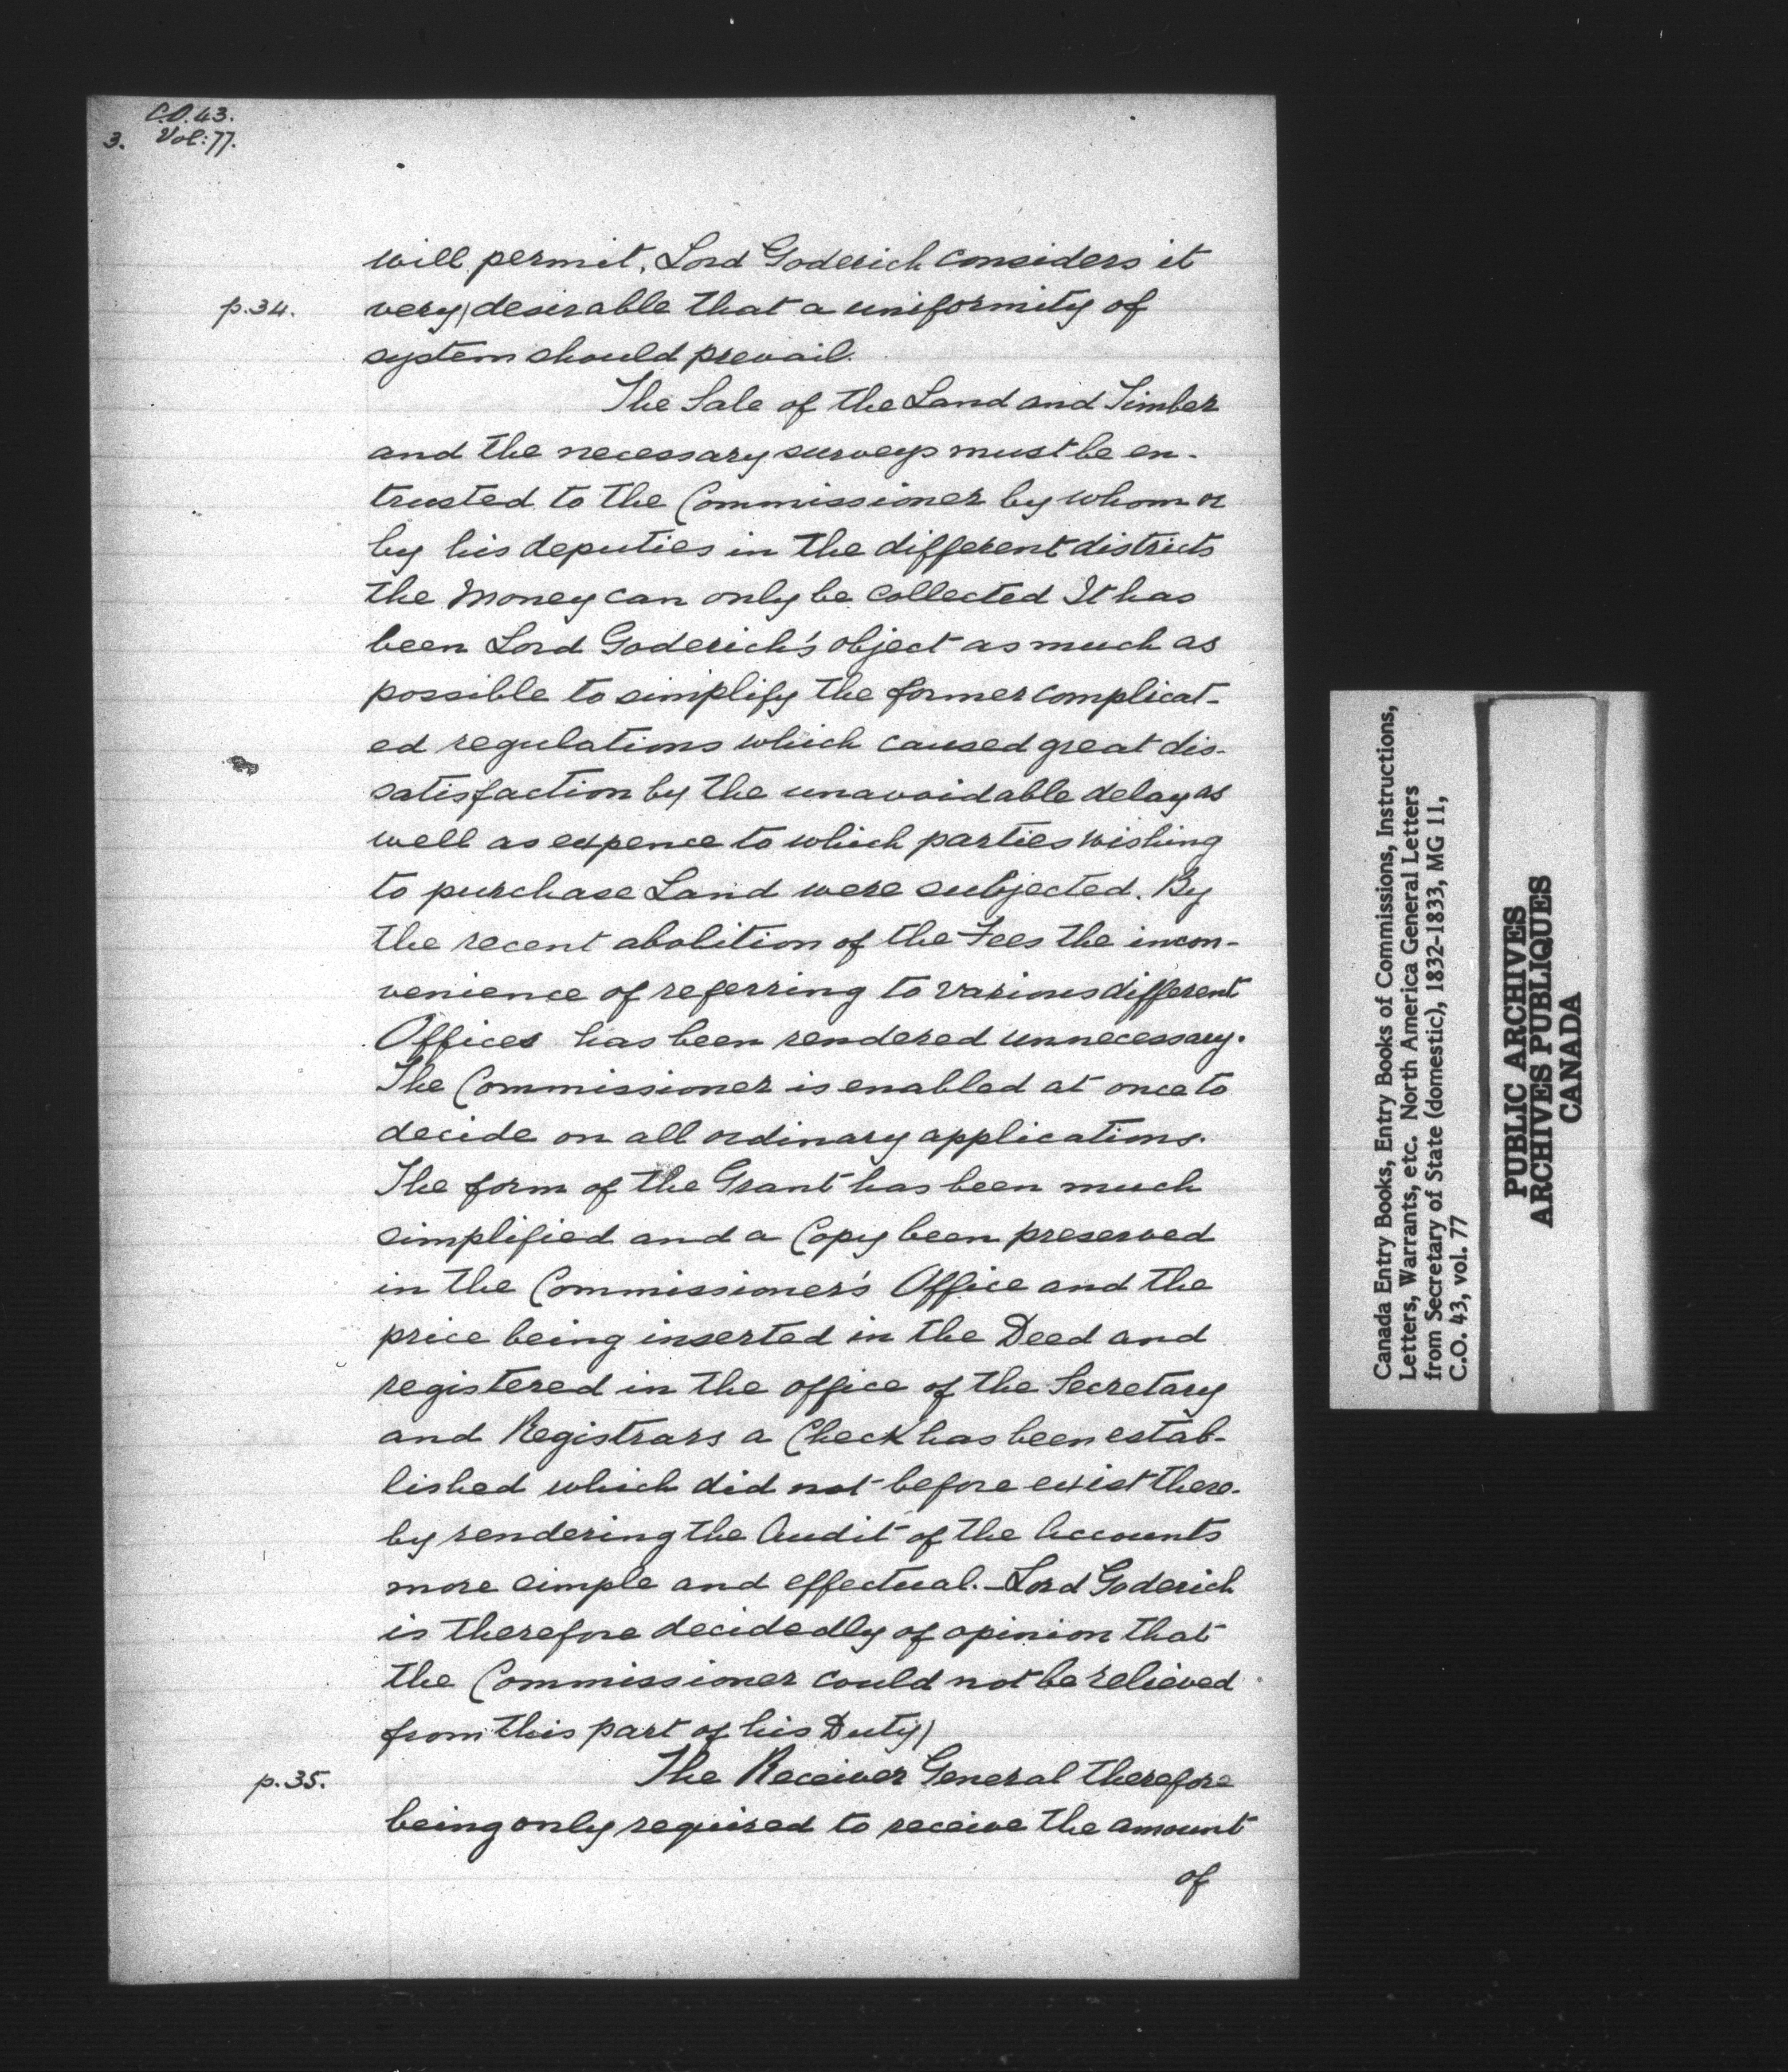 C.O. 43.
3. Vol: 77.
will permit, Lord Goderich considers it
p. 34. very/desirable that a uniformity of
system should prevail.
The Sale of the Land and Timber
and the necessary surveys must be en-
trusted to the Commissioner by whom or
by his deputies in the different districts
the Money can only be collected It has
been Lord Goderich's object as much as
possible to simplify the former complicat-
ed regulations which caused great dis-
satisfaction by the unavoidable delay as
well as expence to which parties wishing
to purchase Land were subjected. By
the recent abolition of the Fees the incon-
venience of referring to various different
Offices has been rendered unnecessary.
The Commissioner is enabled at once to
decide on all ordinary applications.
The form of the Grant has been much
simplified and a Copy been preserved
in the Commissioner's Office and the
price being inserted in the Deed and
registered in the office of the Secretary
and Registrars a Check has been estab-
lished which did not before exist there-
by rendering the Audit of the Accounts
more simple and effectual. – Lord Goderich
is therefore decidedly of opinion that
the Commissioner could not be relieved
from this part of his Duty/
p. 35. The Receiver General therefore
being only required to receive the amount
of
Canada Entry Books, Entry Books of Commissions, Instructions,
Letters, Warrants, etc. North America General Letters
from Secretary of State (domestic), 1832-1833, MG 11,
C.O. 43, vol. 77
PUBLIC ARCHIVES
ARCHIVES PUBLIQUES
CANADA